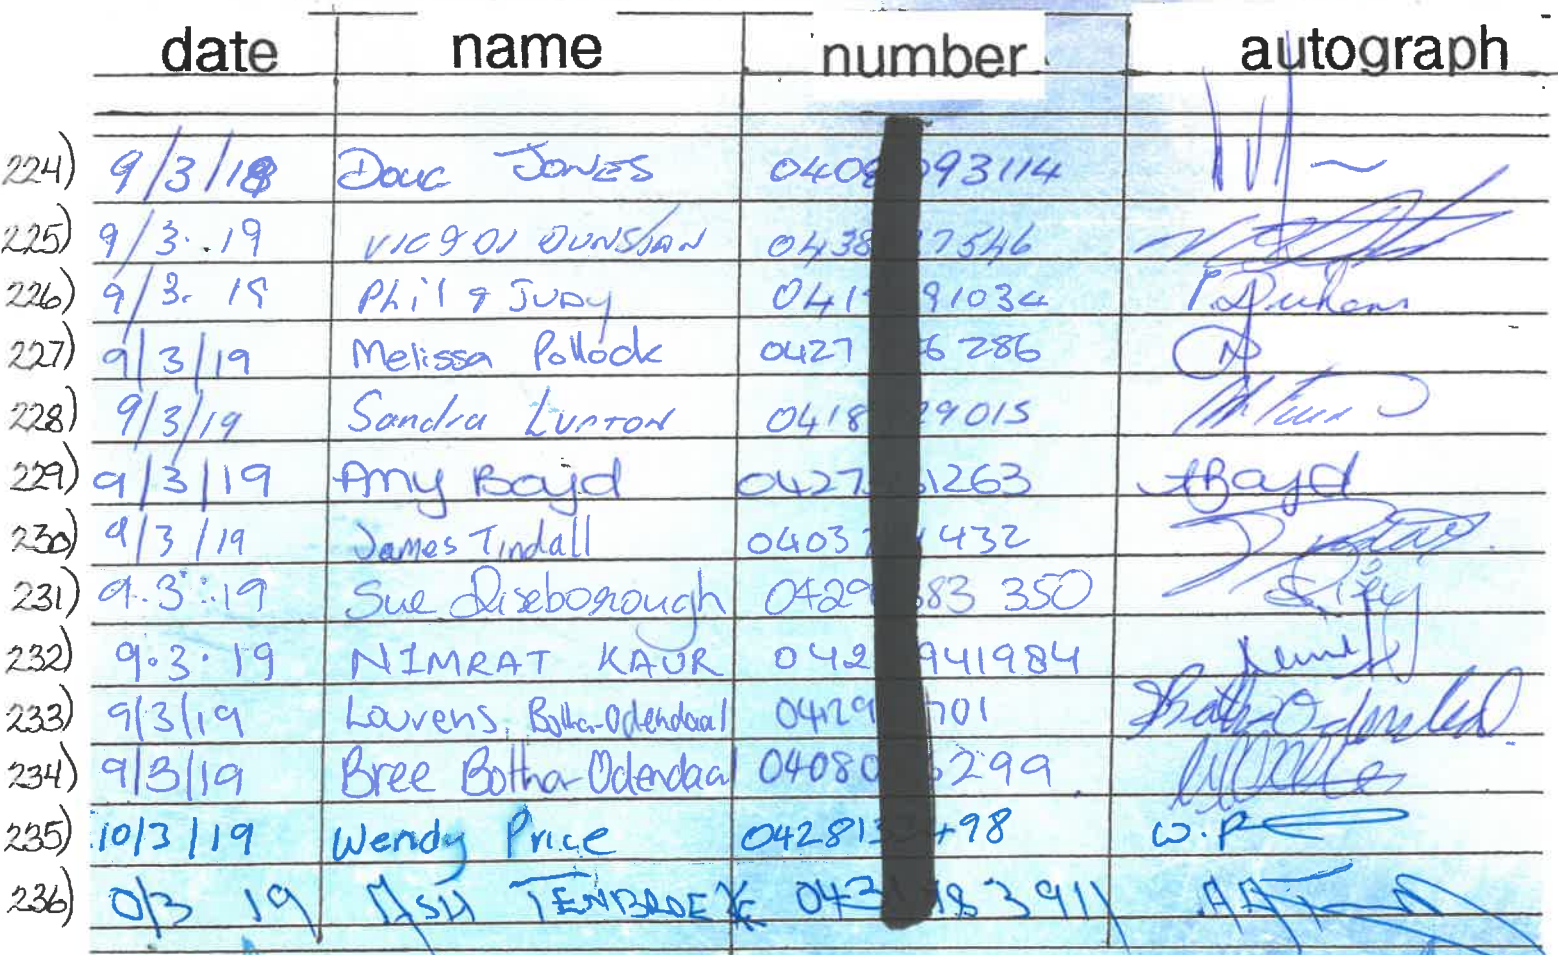 date name number autograph
224) 9/3/19 Doug JONES 0408 093114
225) 9/3.19 0438 7546
226) 9/3.19 Phil & JUDY 041 91034
227) 9/3/19 Melissa Pollock 0427 6286
228) 9/3/19 Sandra LUPTON 0418 29015
229) 9/3/19 Amy Boyd 0427 1263 ABoyd
230) 9/3/19 James Tindall 0403 1432
231) 9.3.19 Sue Diseborough 0429 583 350
232) 9.3.19 NIMRAT KAUR 042 941984
233) 9/3/19 Lourens Botha-Odendaal 0429 701
234) 9/3/19 Bree Botha-Odendaal 04080 5299
235) 10/3/19 Wendy Price 042813 498 W.P
236) 0/3 19 ASH 043 18 3911